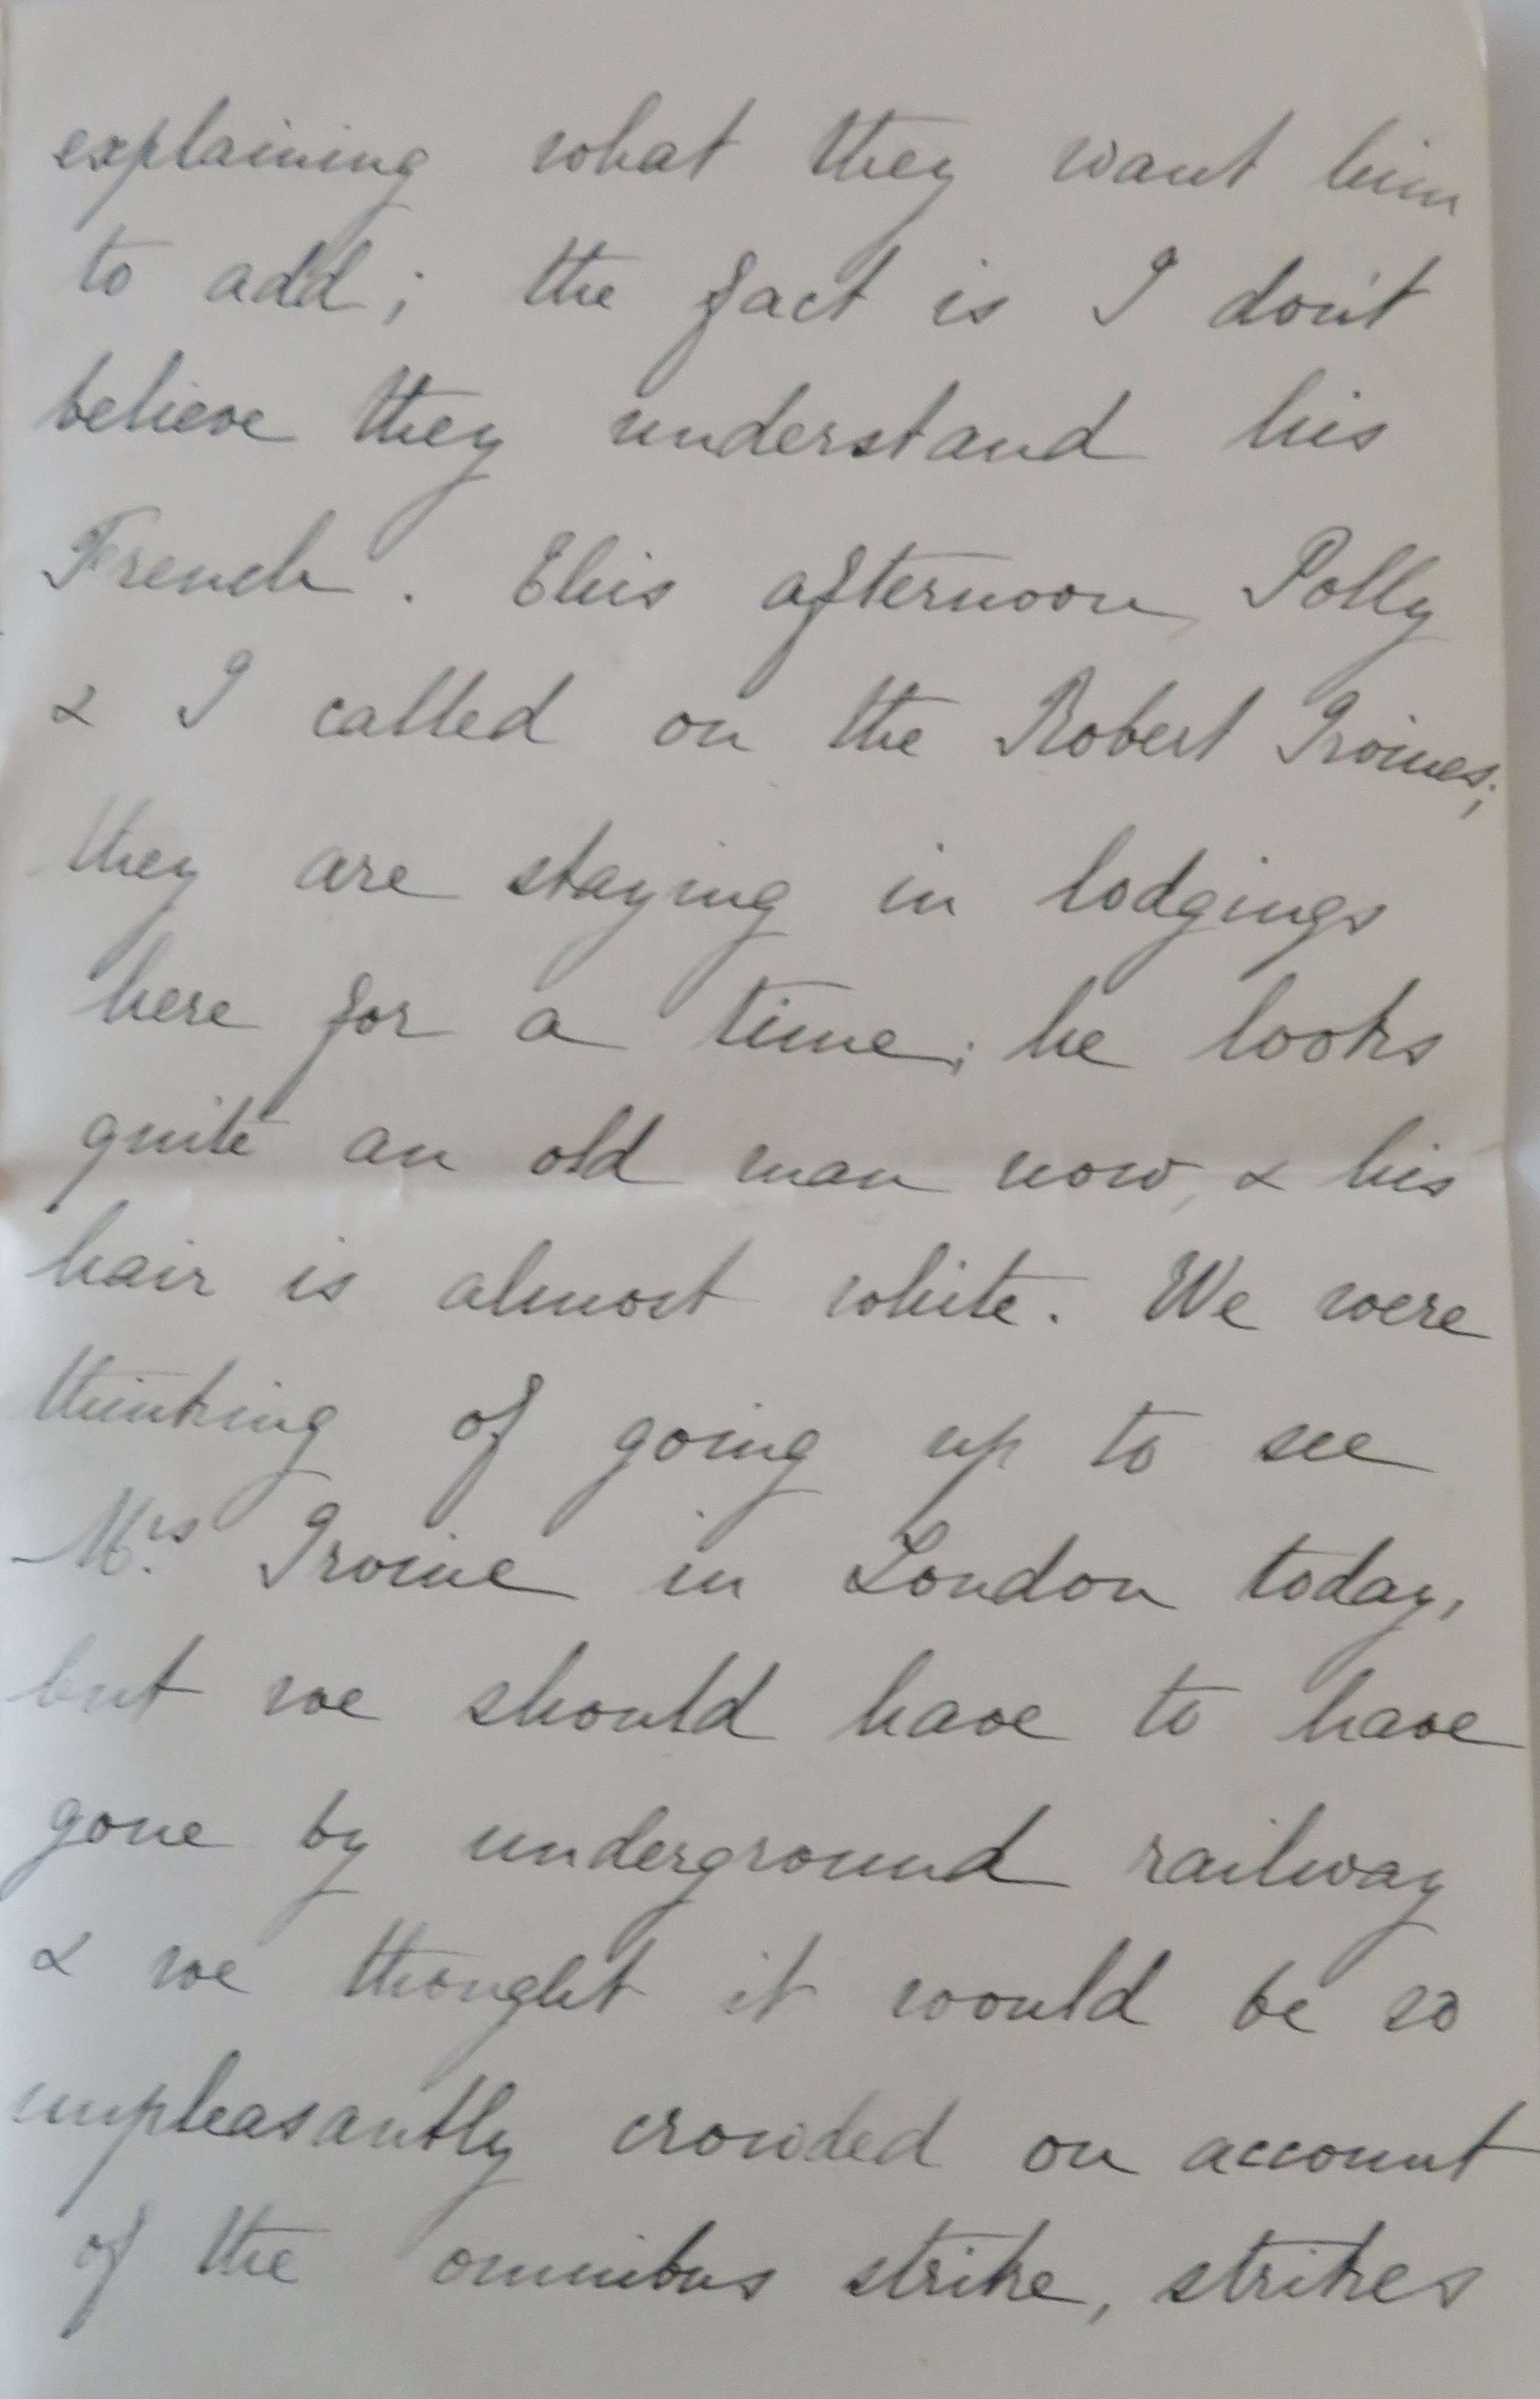 explaining what they want him
to add; the fact is I don't
believe they understand his
French. This afternoon, Polly
& I called on the Robert Irvines;
they are staying in lodgings
here for a time; he looks
quite an old man now, & his
hair is almost white. We were
thinking of going up to see
Mrs. Irvine in London today,
but we should have to have
gone by underground railway
& we thought it would be so
unpleasantly crowded on account
of the omnibus strike, strikes